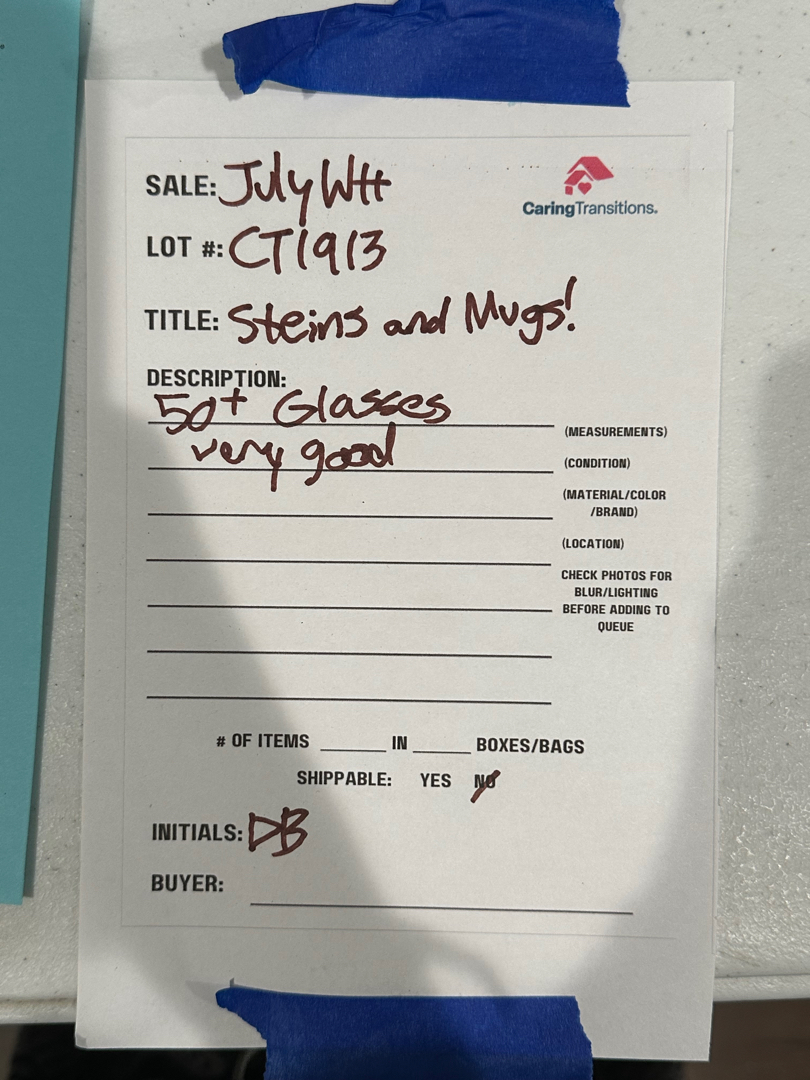 SALE: July WH
CaringTransitions.
LOT #: CT1913
TITLE: Steins and Mugs!
DESCRIPTION:
50+ Glasses
(MEASUREMENTS)
very good
(CONDITION)
(MATERIAL/COLOR
/BRAND)
(LOCATION)
CHECK PHOTOS FOR
BLUR/LIGHTING
BEFORE ADDING TO
QUEUE
# OF ITEMS ______ IN ______ BOXES/BAGS
SHIPPABLE: YES NO
INITIALS: DB
BUYER: